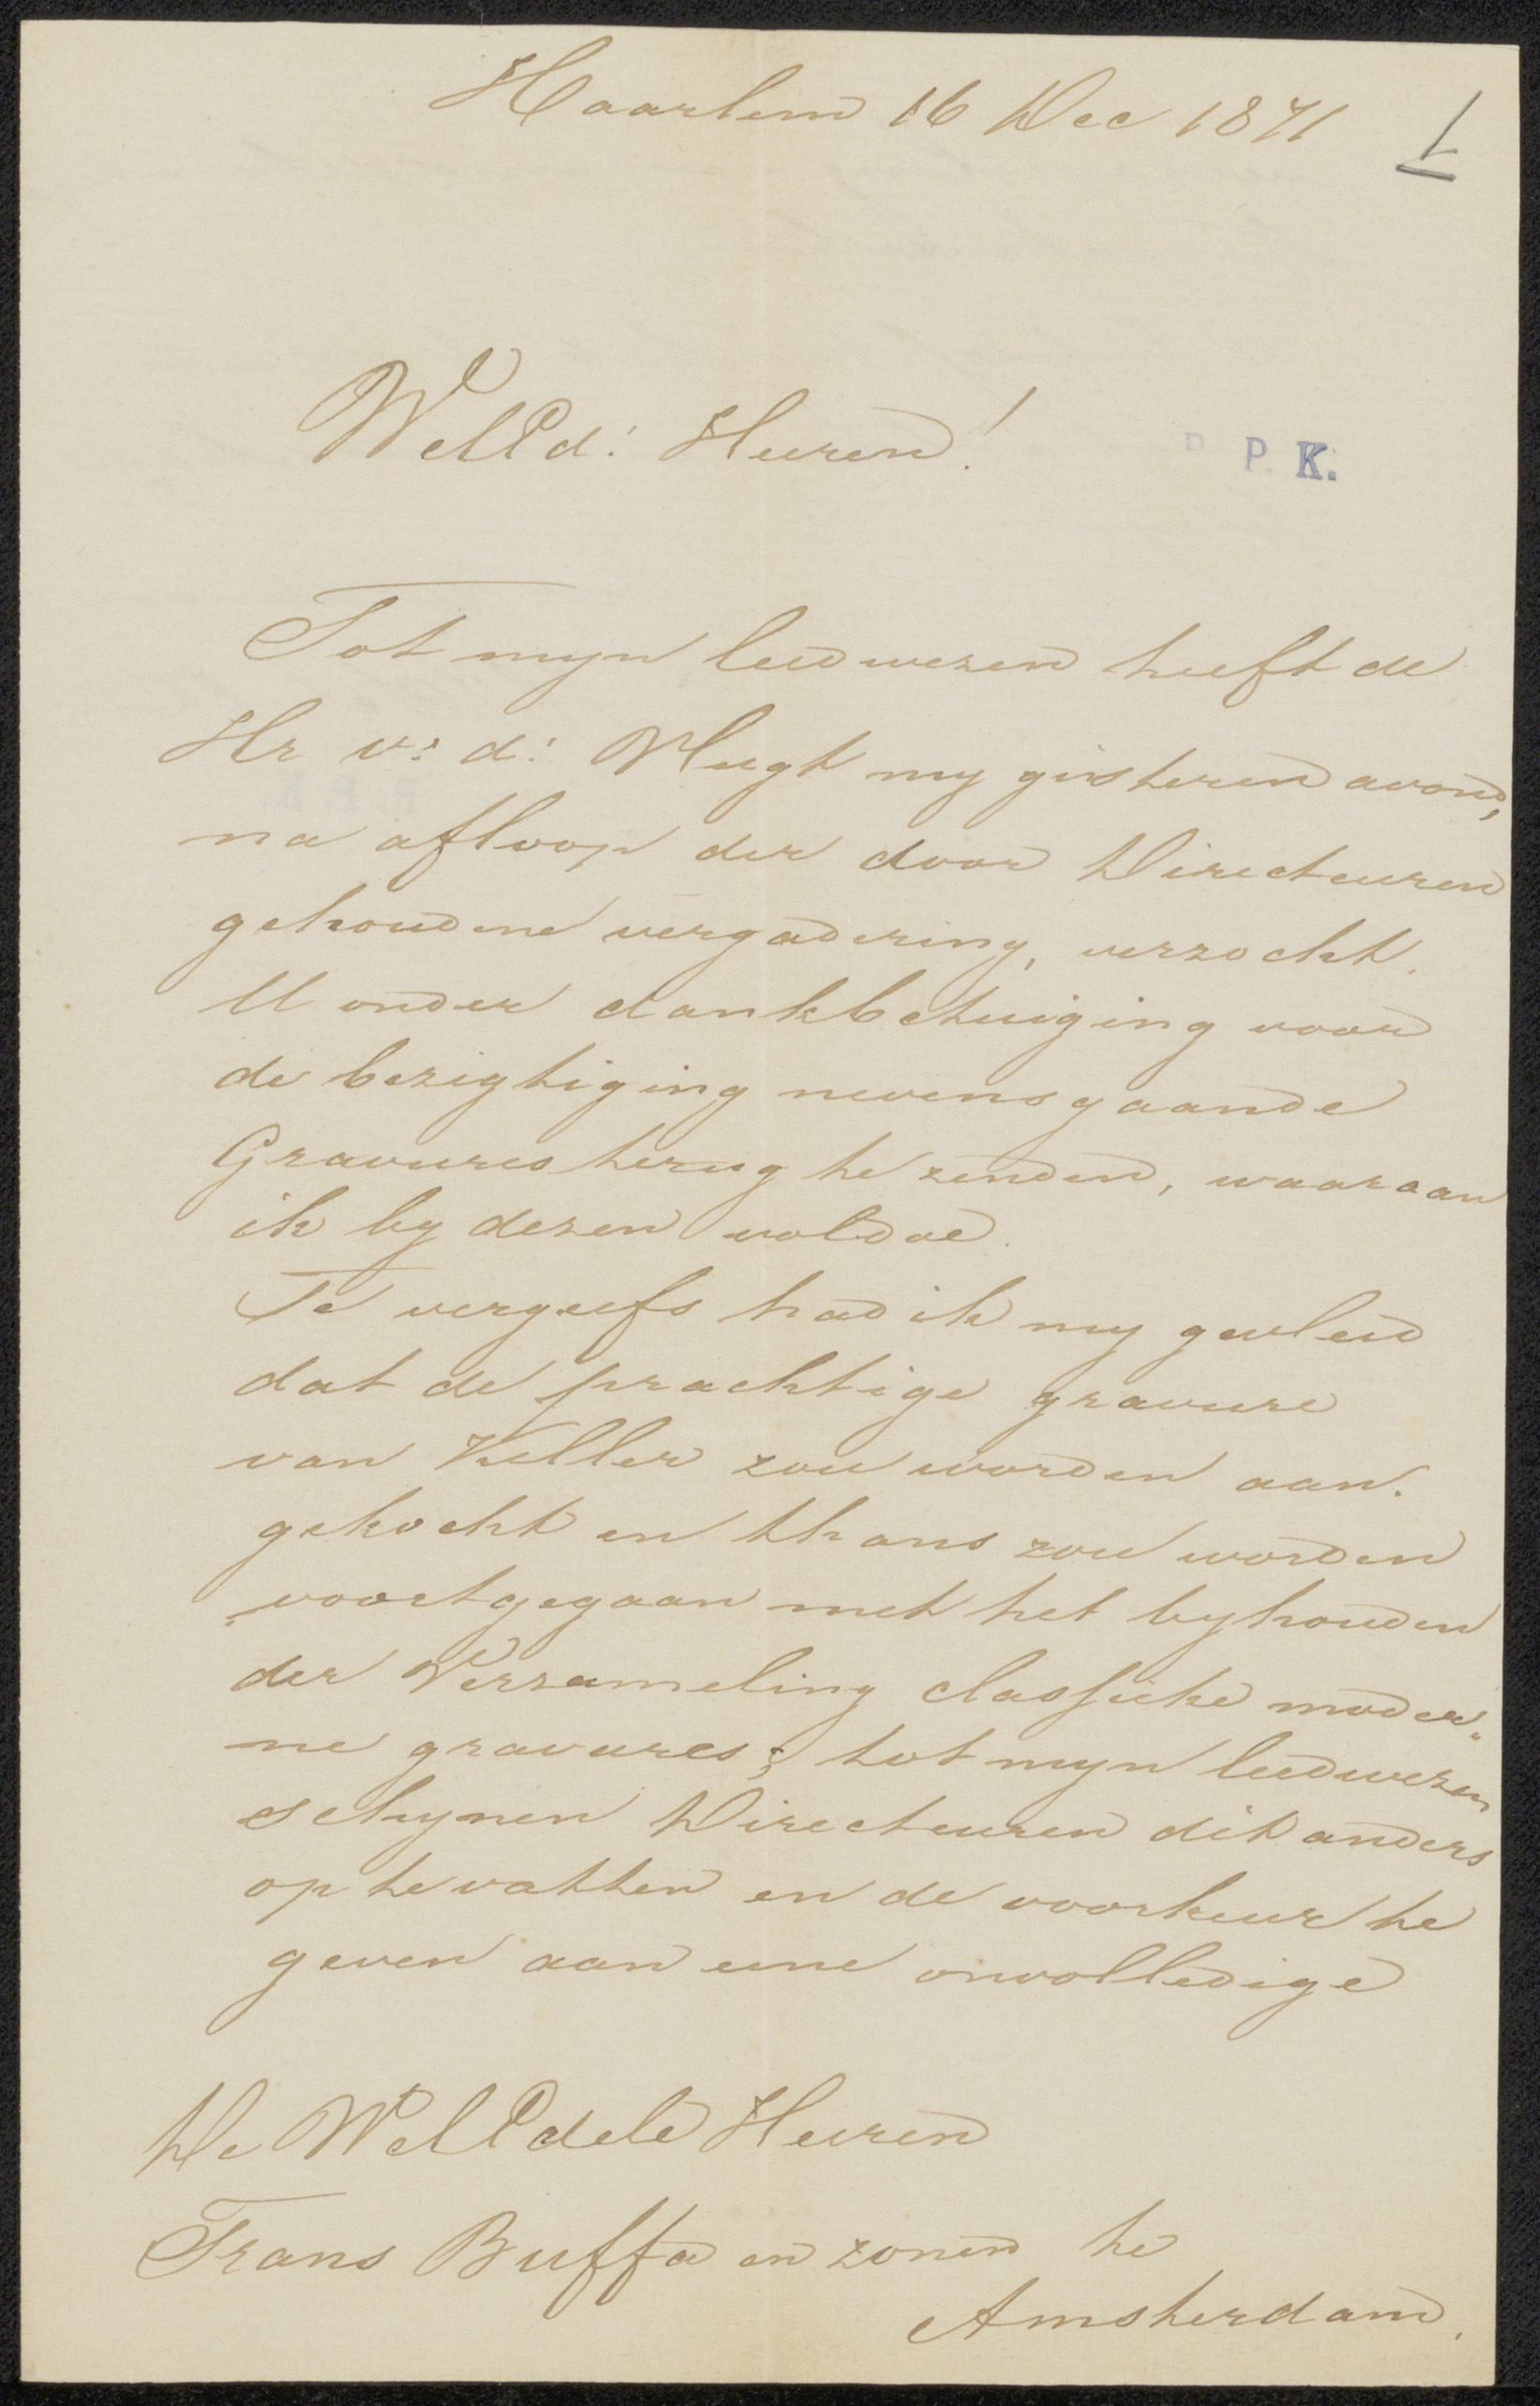 Haarlem 16 Dec 1871
1
WelEd: Heeren!
P. P. K.
Tot myn leedwezen heeft de
Hr v: d: Vlugt my gisteren avond,
na afloop der door Directeuren
gehoudene vergadering, verzocht
U onder dankbetuiging voor
de bezigtiging nevensgaande
Gravures terug te zenden, waaraan
ik by dezen voldoe.
Te vergeefs had ik my gevleid
dat de prachtige gravure
van Keller zou worden aan-
gekocht en thans zou worden
voortgegaan met het byhouden
der Verzameling classieke moder-
ne gravures; tot myn leedwezen
schynen Directeuren dit anders
op te vatten en de voorkeur te
geven aan eene onvolledige
De WelEdele Heeren
Frans Buffa en zonen te
Amsterdam.